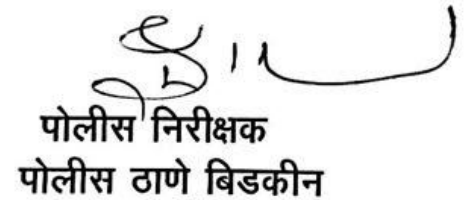 पोलीस निरीक्षक
पोलीस ठाणे बिडकीन